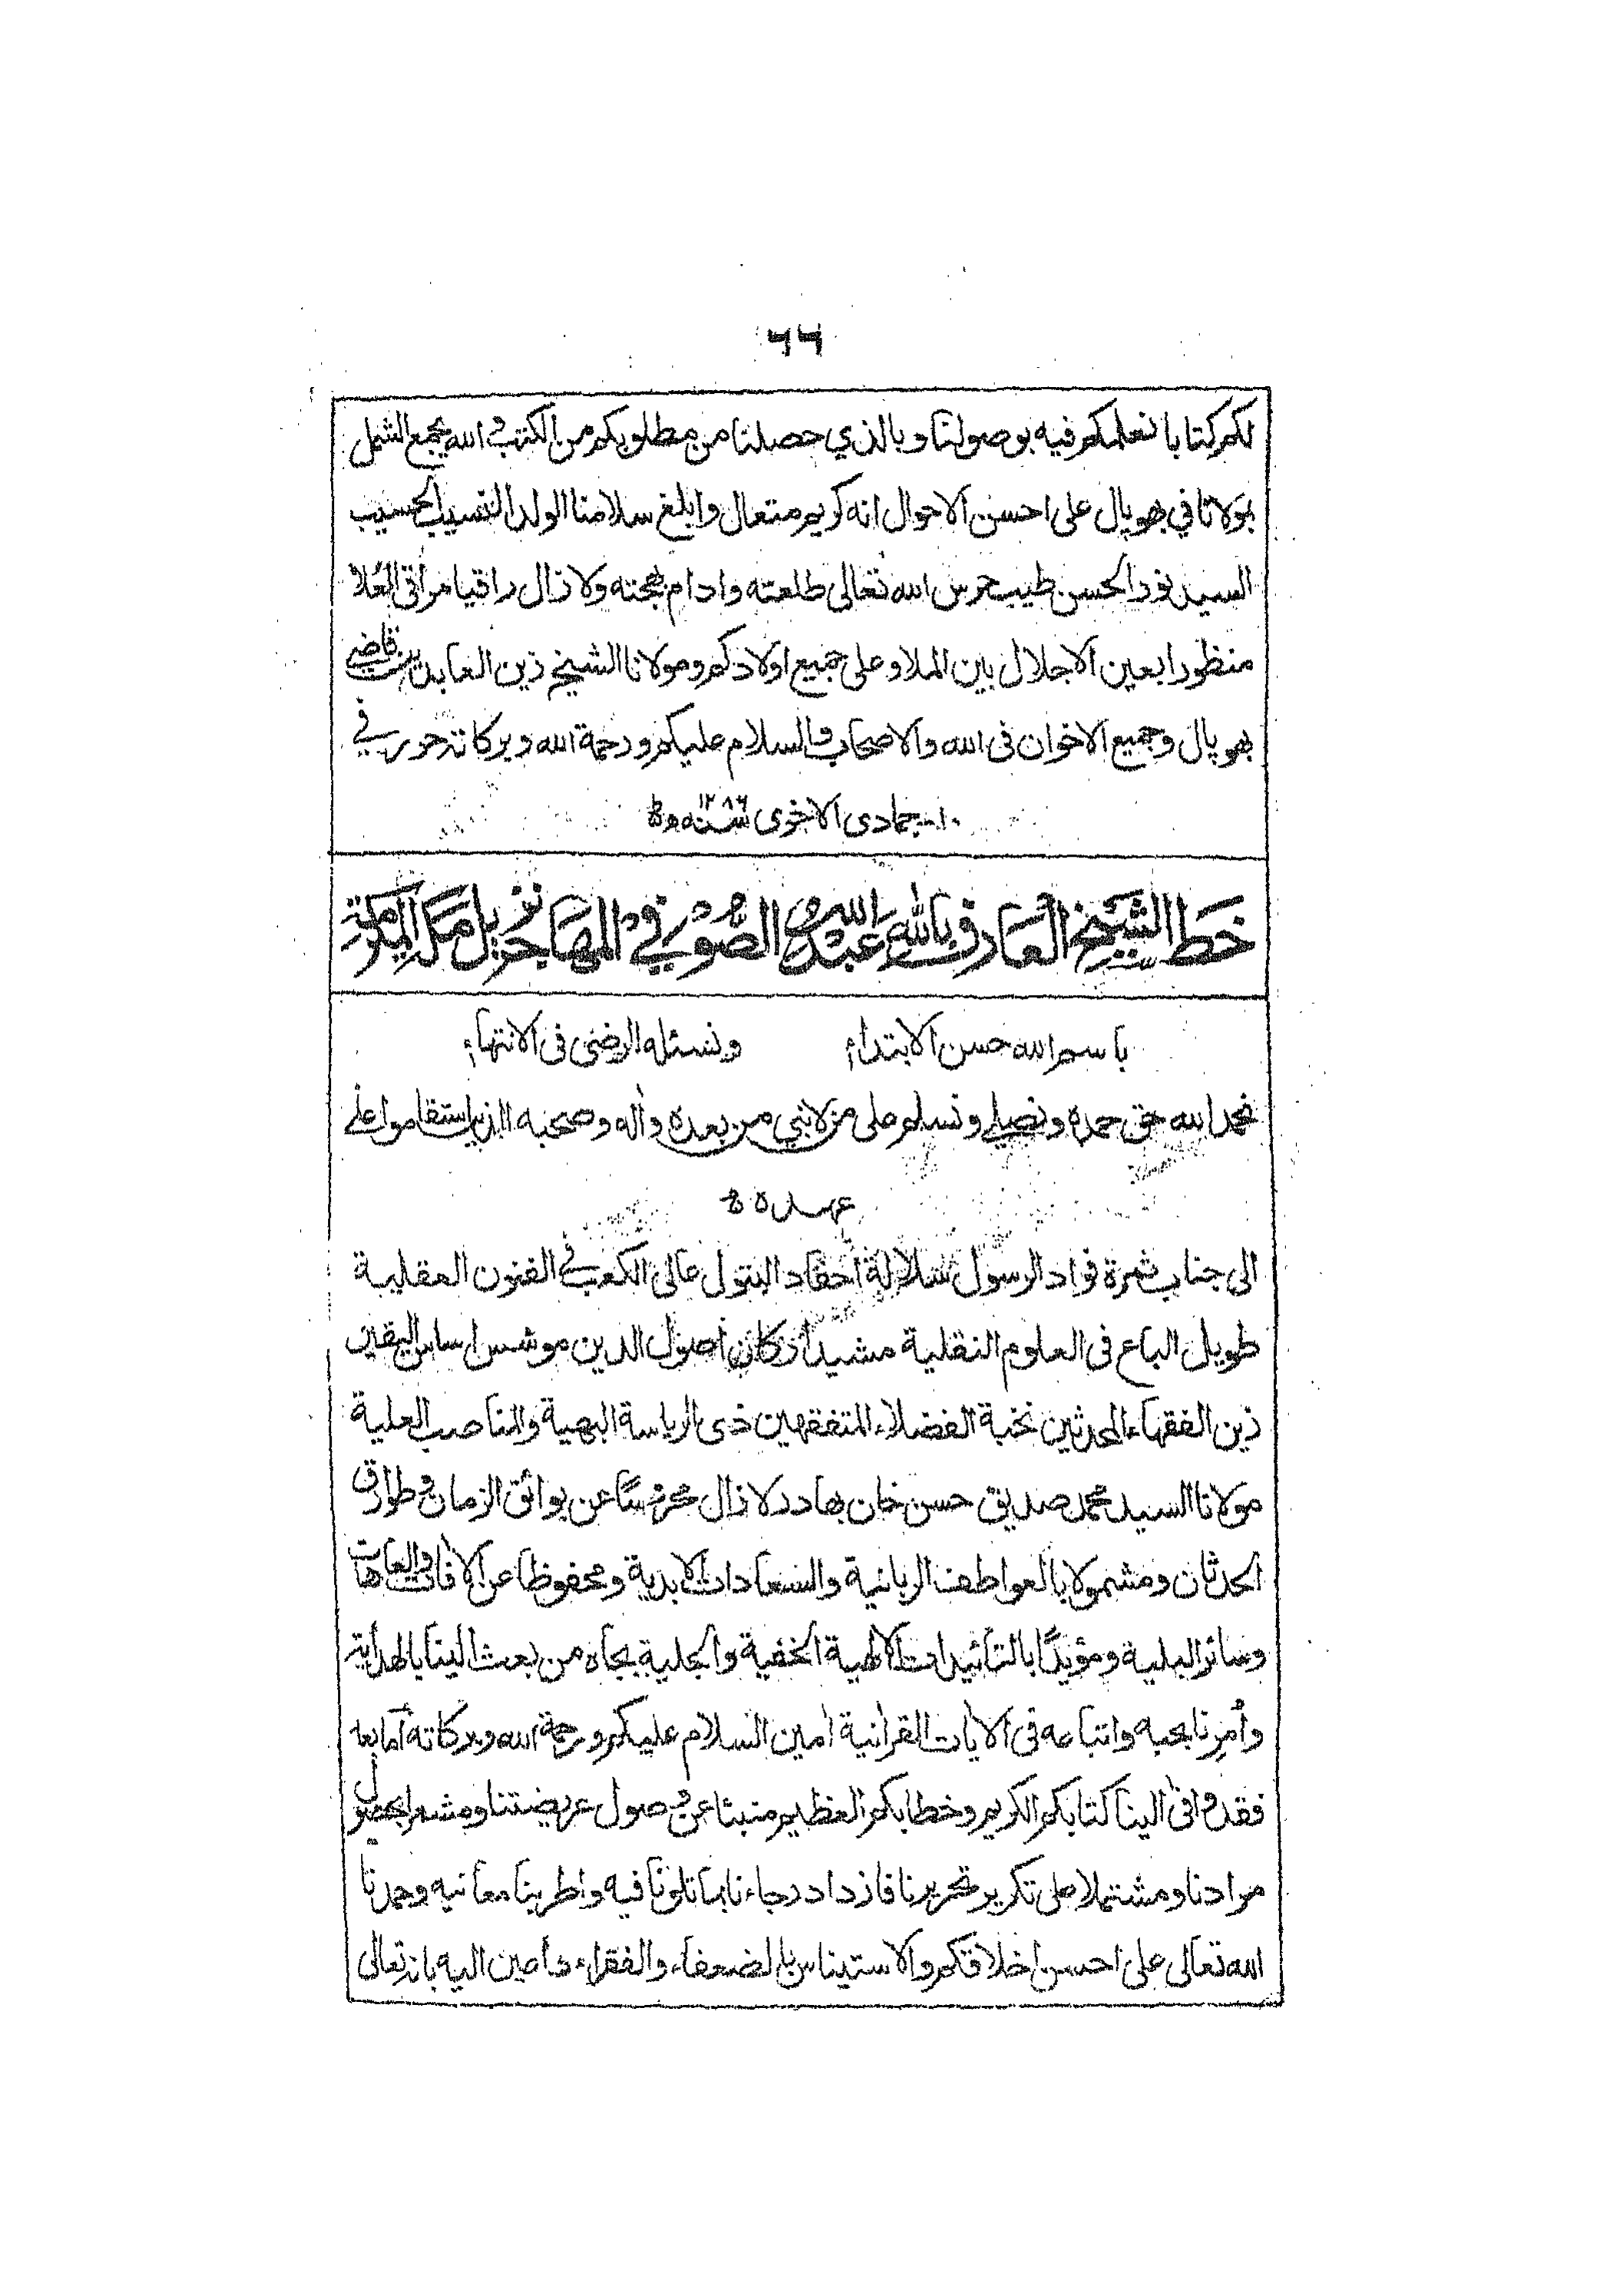 ٦٦
لكم كتابا نعلمكم فيه بوصولنا وبالذي حصلنا من مطلوبكم من الكتب والله يجمع الشمل
بمولانا في بهوپال على احسن الاحوال انه كريم متعال وابلغ سلامنا الولد النسيب الحسيب
السيد نور الحسن طيب حرس الله تعالى طلعته وادام بهجته ولا زال راقيا مراقي العلا
منظورا بعين الاجلال بين الملا وعلى جميع اولادكم ومولانا الشيخ زين العابدين قاضي
بهوپال وجميع الاخوان في الله والاصحاب والسلام عليكم ورحمة الله وبركاته حرر في
١٠ جمادى الاخرى سنه ١٢٨٦
خط الشيخ العارف بالله عبد الله الصوفي المهاجر نزيل مكة المكرمة
باسم الله حسن الابتداء ونسئله الرضى في الانتهاء
نحمد الله حق حمده ونصلي ونسلم على من لا نبي من بعده واله وصحبه الذين استقاموا على
عهده
الى جناب ثمرة فواد الرسول سلالة احفاد البتول عالي الكعب في الفنون العقلية
طويل الباع في العلوم النقلية مشيد اركان اصول الدين موسس اساس اليقين
زين الفقهاء المحدثين نخبة الفضلاء المتفقهين ذى الرياسة البهية والمناصب العلية
مولانا السيد محمد صديق حسن خان بهادر لا زال محروسًا عن بوائق الزمان وطوارق
الحدثان ومشمولا بالعواطف الربانية والسعادات الابدية ومحفوظا عن الافات والعاهات
وسائر البلية ومؤيدًا بالتائيدات الالهية الخفية والجلية بجاه من بعث الينا بالهداية
وأُمِرنا بحبه واتباعه في الايات القرانية امين السلام عليكم ورحمة الله وبركاته اما بعد
فقد وافى الينا كتابكم الكريم وخطابكم العظيم منبئا عن وصول عريضتنا ومشعرا بحصول
مرادنا ومشتملا على تكرير تحريرنا فازداد رجاءنا بما تلونا فيه واطربنا معانيه وحمدنا
الله تعالى على احسن اخلاقكم والاستيناس بالضعفاء والفقراء داعين اليه بانه تعالى